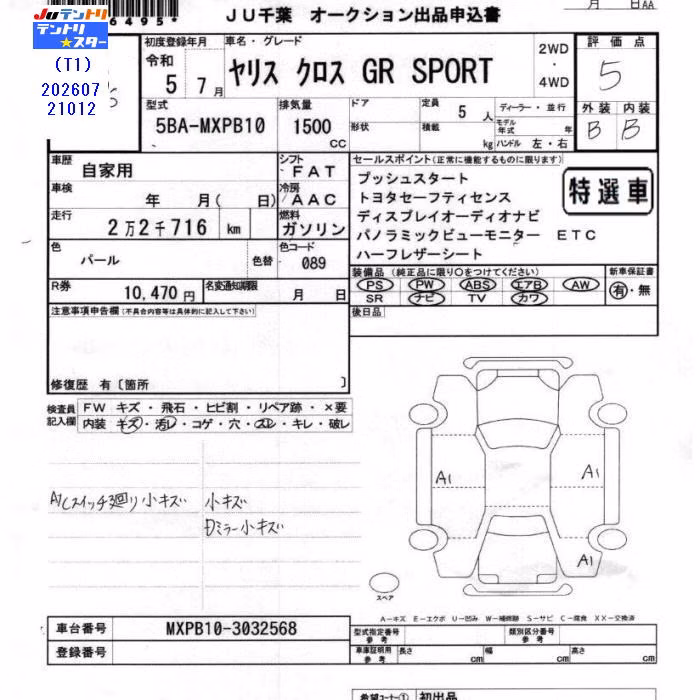 6495*
JU千葉 オークション出品申込書
月 日AA
JUテントリ
テントリ★スター
(T1)
202607
21012
初度登録年月
令和
5 7月
車名・グレード
ヤリス クロス GR SPORT
2WD
・
4WD
評価点
5
外装 内装
B B
型式
5BA-MXPB10
排気量
1500
CC
ドア
形状
定員 5 人
積載 kg
ディーラー・並行
モデル年式 年
ハンドル 左・右
車歴 自家用
シフト FAT
車検 年 月( 日)
冷房 AAC
走行 2万2千716 km
燃料 ガソリン
色 パール 色替
色コード 089
R券 10,470円
名変通知期限 月 日
セールスポイント(正常に機能するものに限ります)
プッシュスタート
トヨタセーフティセンス
ディスプレイオーディオナビ
パノラミックビューモニター ETC
ハーフレザーシート
特選車
装備品 (純正品に限り○をつけてください)
PS PW ABS エアB AW
SR ナビ TV カワ
新車保証書
有・無
後日品
注意事項申告欄(不具合内容等は具体的に記入して下さい)
修復歴 有〔箇所 〕
検査員記入欄
FW キズ・飛石・ヒビ割・リペア跡・×要
内装 キズ・汚レ・コゲ・穴・スレ・キレ・破レ
小キズ 小キズ
Dミラー小キズ
A1 A1
A1
スペア
A-キズ E-エクボ U-凹み W-補修跡 S-サビ C-腐食 XX-交換済
車台番号 MXPB10-3032568
登録番号
型式指定番号 参考
類別区分番号 参考
車庫証明用 参考
長さ cm 幅 cm 高さ cm
希望コーナー① 初出品